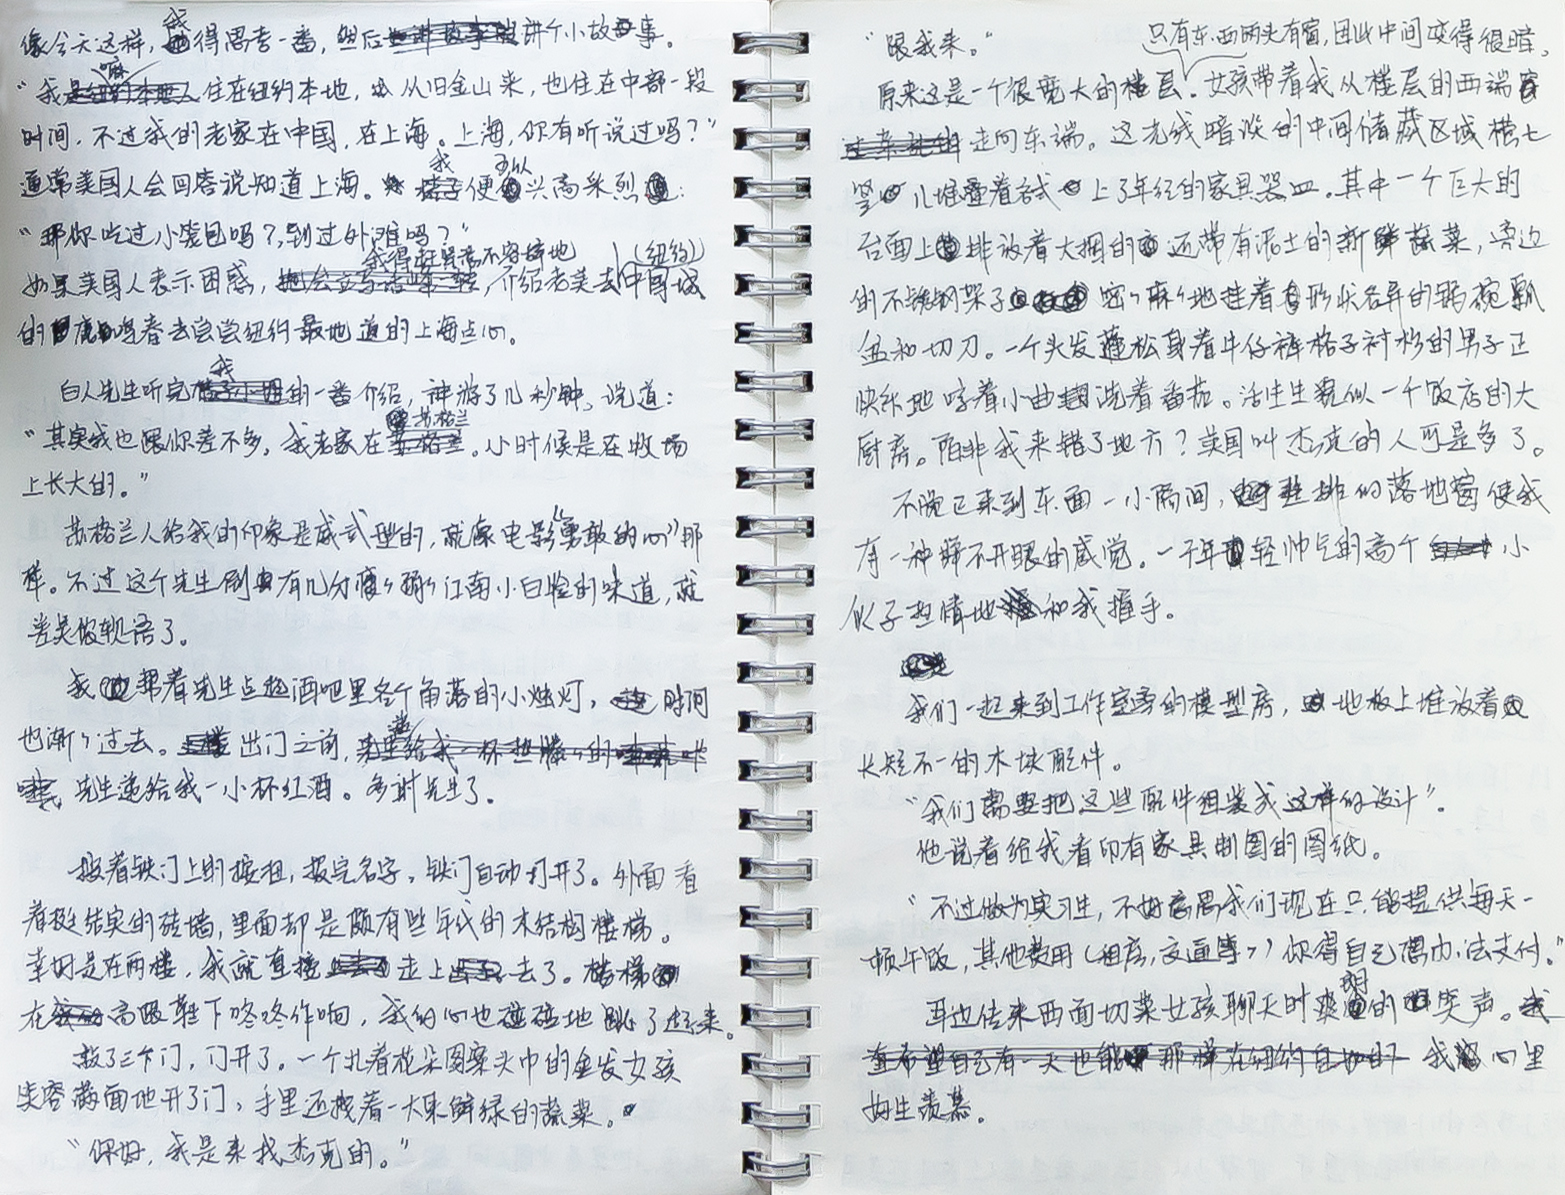 像今天这样，我得思考一番，然后讲个小故事。
“我嘛住在纽约本地，从旧金山来，也住在中部一段
时间，不过我的老家在中国，在上海。上海，你有听说过吗？”
通常美国人会回答说知道上海。我便可以兴高采烈：
“那你吃过小笼包吗？，到过外滩吗？”
如果美国人表示困惑，我得刻不容缓地，介绍老美去（纽约）中国城
的鹿鸣春去尝尝纽约最地道的上海点心。
白人先生听完我的一番介绍，神游了几秒钟，说道：
“其实我也跟你差不多，我老家在苏格兰。小时候是在牧场
上长大的。”
苏格兰人给我的印象是威武型的，就像电影“勇敢的心”那
样。不过这个先生倒有几分瘦弱江南小白脸的味道，就
当美做软语了。
我帮着先生点起酒吧里各个角落的小烛灯，时间
也渐渐过去。出门之前，
先生递给我一小杯红酒。多谢先生了。
按着铁门上的按扭，报完名字，铁门自动打开了。外面看
着挺结实的砖墙，里面却是颇有些年代的木结构楼梯。
幸好是在两楼，我就直接走上去了。楼梯
在高跟鞋下咚咚作响，我的心也砰砰地跳了起来。
敲了三个门，门开了。一个扎着花朵图案头巾的金发女孩
笑容满面地开了门，手里还拽着一大束鲜绿的蔬菜。
“你好，我是来找杰克的。”
“跟我来。”
只有东西两头有窗，因此中间变得很暗，
原来这是一个很宽大的楼层。女孩带着我从楼层的西端
走向东端。这光线暗淡的中间储藏区域横七
竖八堆叠着各式上了年纪的家具器皿。其中一个巨大的
台面上排放着大捆的还带有泥土的新鲜蔬菜，旁边
的不锈钢架子密密麻麻地挂着形状各异的锅碗瓢
盆和切刀。一个头发蓬松身着牛仔裤格子衬衫的男子正
快乐地哼着小曲洗着番茄。活生生貌似一个饭店的大
厨房。陌非我来错了地方？美国叫杰克的人可是多了。
不晚已来到东面一小隔间，整排的落地窗使我
有一种睁不开眼的感觉。一个年轻帅气的高个小
伙子热情地和我握手。
我们一起来到工作室旁的模型房，地板上堆放着
长短不一的木块配件。
“我们需要把这些配件组装成这样的设计”。
他说着给我看印有家具制图的图纸。
“不过做为实习生，不好意思我们现在只能提供每天一
顿午饭，其他费用（租房，交通等等）你得自己想办法支付。”
耳边传来西面切菜女孩聊天时爽朗的笑声。
我心里
好生羡慕。